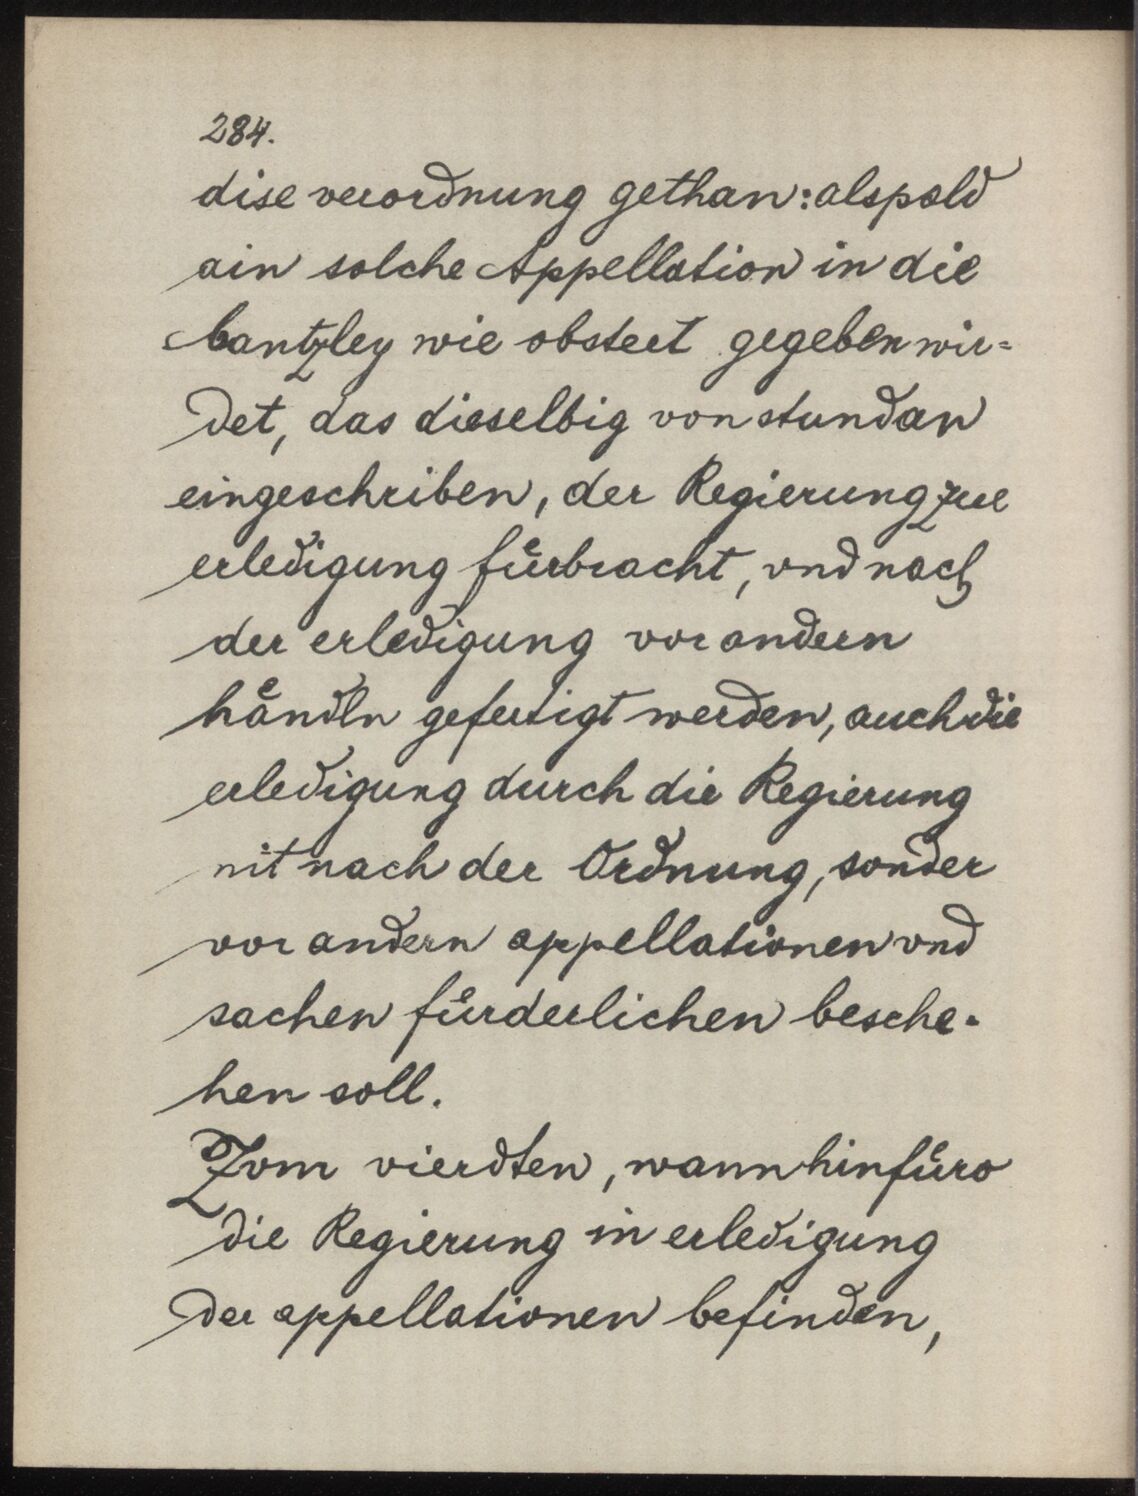 284.
dise verordnung gethan: alspald
ain solche Appellation in die
Cantzley wie obsteet gegeben wir=
det, das dieselbig von stundan
eingeschriben, der Regierung zue
erledigung fůrbracht, vnd nach
der erledigung vor andern
håndln gefertigt werden, auch die
erledigung durch die Regierung
nit nach der Ordnung, sonder
vor andern appellationen vnd
sachen fůrderlichen besche-
hen soll.
Zvm vierdten, wann hinfůro
die Regierung in erledigung
der appellationen befinden,